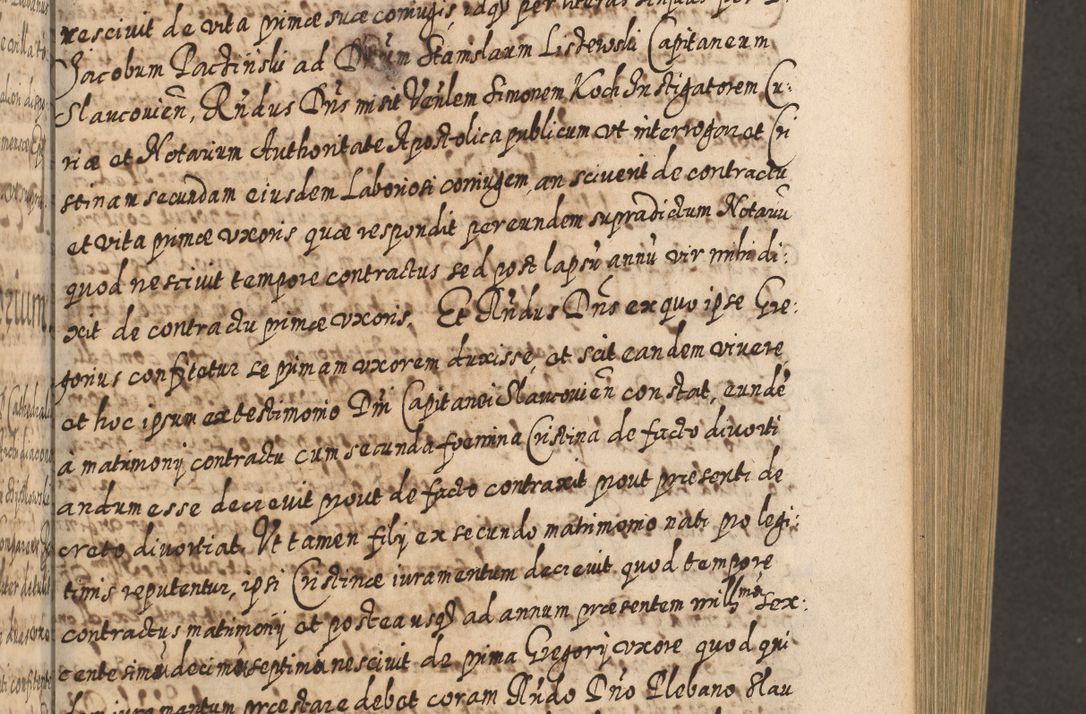 nescivit de vita primæ suæ coniugis, idq; per literas
Jacobum Pactinski ad Dnum Stanislaum Listewski Capitaneum
Slaucovien̄, Rn̄dus Dn̄s misit Ven̄lem Simonem Koch Instigatorem Cu:
riæ et Notarium Authoritate Apostolica publicum vt interrogaret Cri
stinam secundam eiusdem Laboriosi coniugem, an sciverit de contractu
et vita primæ vxoris quæ respondit per eundem supradictum Notariū
quod nescivit tempore contractus sed post lapsū annū vir mihi di:
xit de contractu primæ vxoris. Et Rn̄dus Dn̄s ex quo ipse Gre:
gorius confitetur se primam vxorem duxisse, et scit eandem vivere
et hoc ipsum ex testimonio Dn̄i Capitanei Slaucovien̄ constat, eundē
à matrimonij contractu cum secunda foemina Cristina de facto divorti
andum esse decrevit prout de facto contraxit prout præsenti de
creto divortiat. Vt tamen filij ex secundo matrimonio nati pro legi:
timis reputentur, ipsi Cristinæ iuramentum decrevit quod tempore
contractus matrimonij et postea usq; ad annum præsentem mill̄mū sex:
centesimū decimū septimū nescivit de prima Gregorij vxore quod qui
dem iuramentum præstare debet coram Rn̄do Dn̄o Plebano Slau